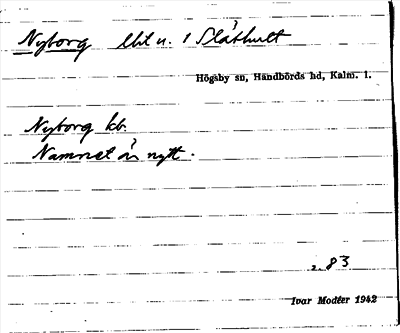 Nyborg lht u. 1 Slåthult
Högsby sn, Handbörds hd, Kalm. l.
Nyborg kb.
Namnet är nytt.
s. 83
Ivar Modéer 1942